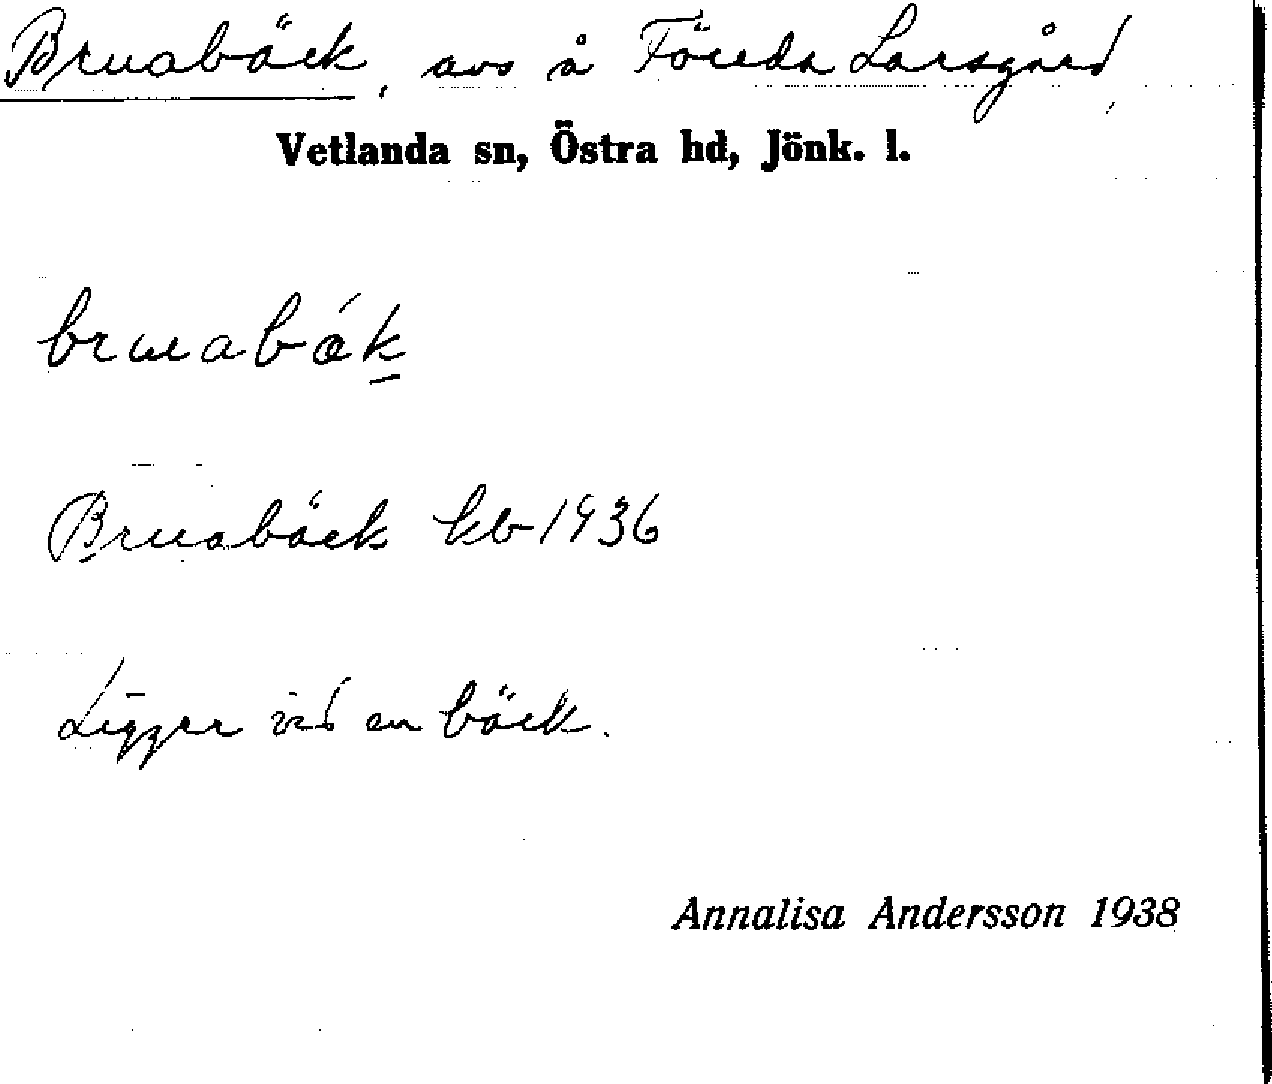 Bruabäck, avs å Föreda Larsgård
Vetlanda sn, Östra hd, Jönk. l.
bruabäk
Bruabäck kb 1936
Ligger vid en bäck.
Annalisa Andersson 1938